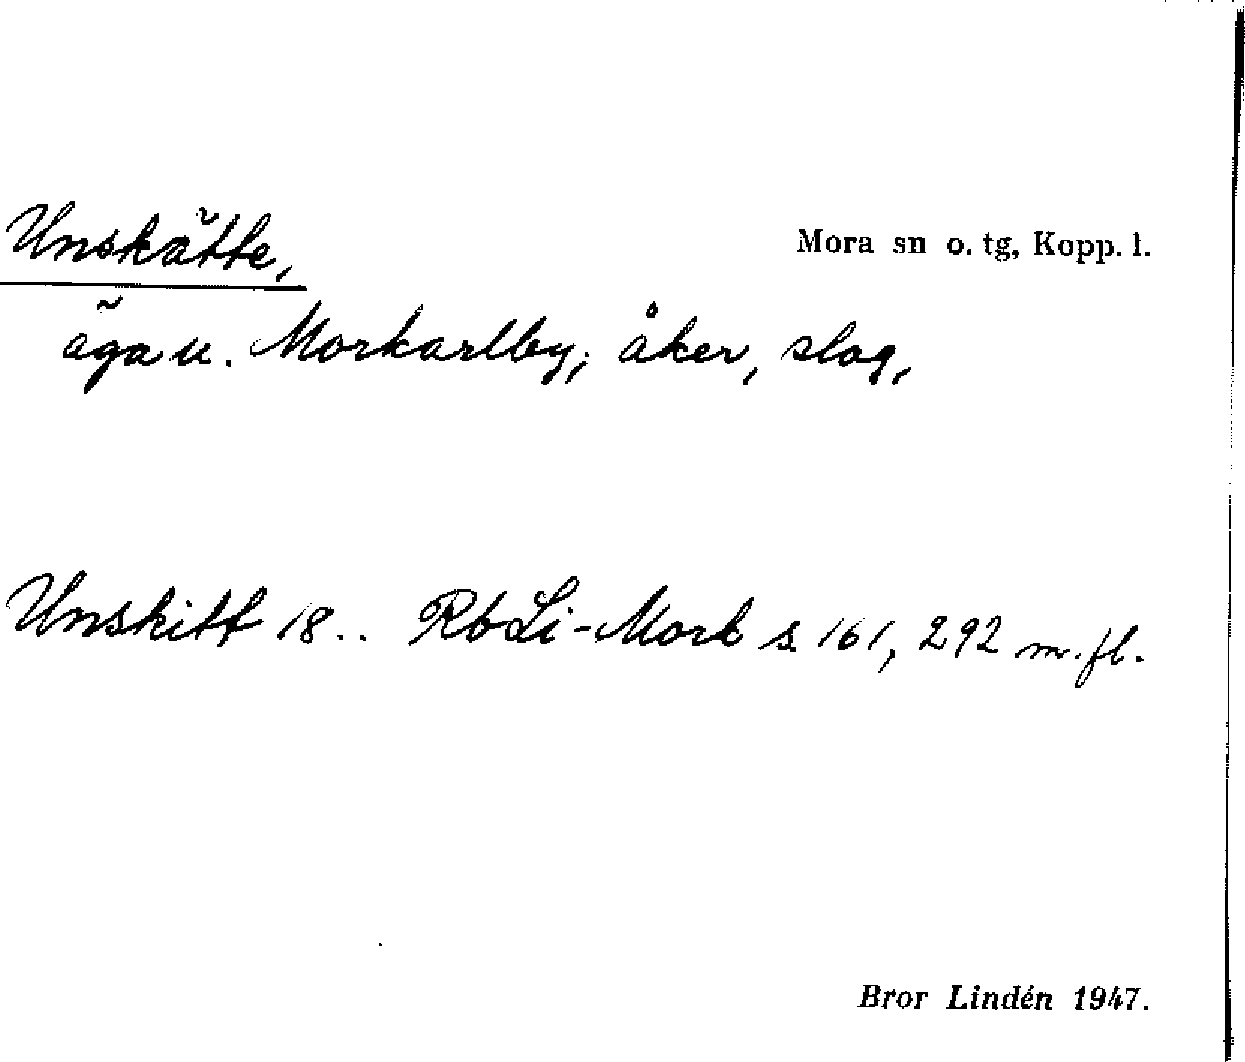 Unskätte,
Mora sn o. tg, Kopp. l.
äga u. Morkarlby; åker, slog,
Unskitt 18.. Rb Li-Mork s. 161, 292 m.fl.
Bror Lindén 1947.